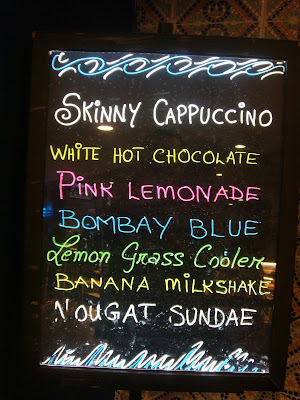 SKINNY CAPPUCCINO
WHITE HOT CHOCOLATE
PINK LEMONADE
BOMBAY BLUE
Lemon Grass Cooler
BANANA MILKSHAKE
NOUGAT SUNDAE